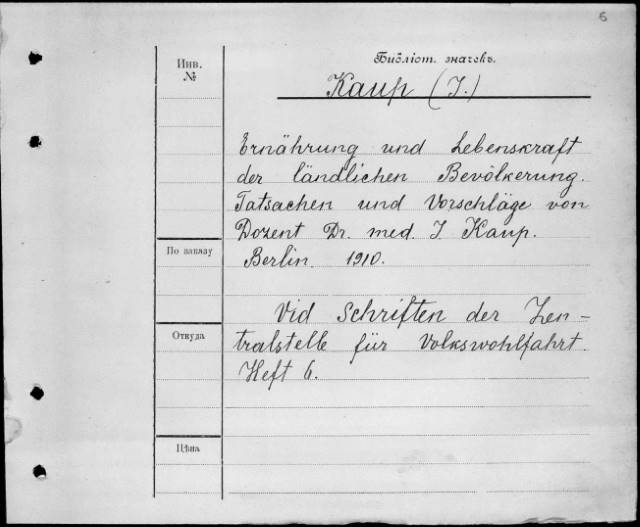 6
Инв.
№
Библіот. значекъ.
Kaup (I.)
Ernährung und Lebenskraft
der ländlichen Bevölkerung.
Tatsachen und Vorschläge von
Dozent Dr. med. I Kaup.
По заказу
Berlin. 1910.
Vid Schriften der Zen-
Откуда
tralstelle für Volkswohlfahrt.
Heft 6.
Цѣна